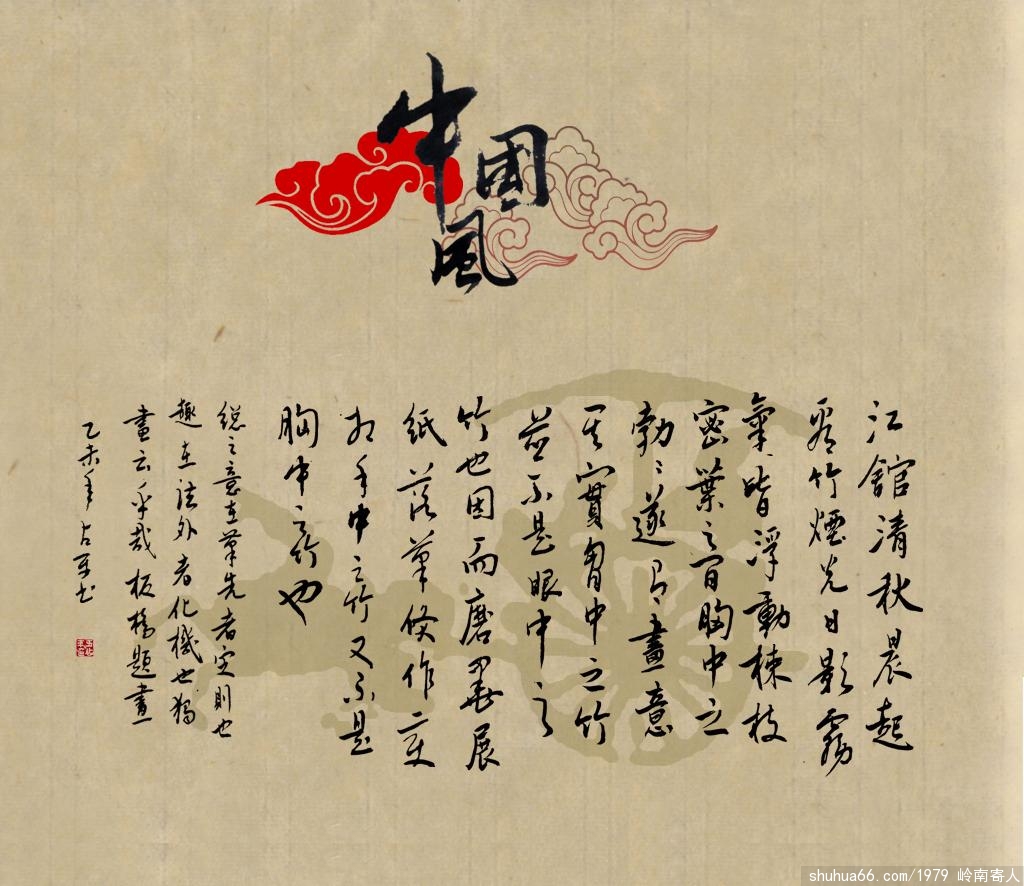 中国風
江舘清秋晨起
看竹煙光日影霧
氣皆浮動疎枝
密葉之间胸中之
勃〻遂有畫意
其實胷中之竹
並不是眼中之
竹也因而磨墨展
紙落筆倏作变
相手中之竹又不是
胸中之竹也
総之意在筆先者定則也
趣在法外者化機也獨
畫云乎哉 板橋題畫
乙未年占军书
shuhua66.com/1979 岭南寄人